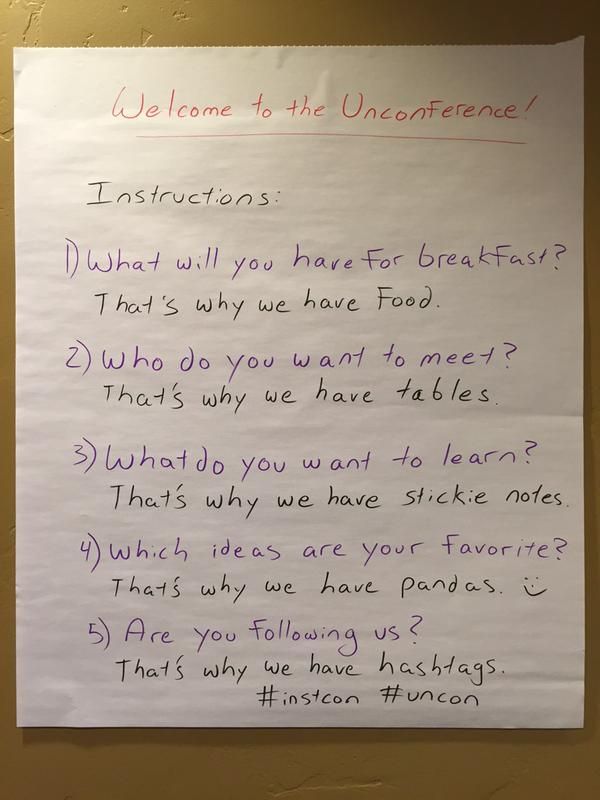 Welcome to the Unconference!
Instructions:
1) What will you have for breakfast?
That's why we have Food.
2) Who do you want to meet?
That's why we have tables.
3) What do you want to learn?
That's why we have stickie notes.
4) Which ideas are your favorite?
That's why we have pandas. :)
5) Are you following us?
That's why we have hashtags.
#instcon #uncon